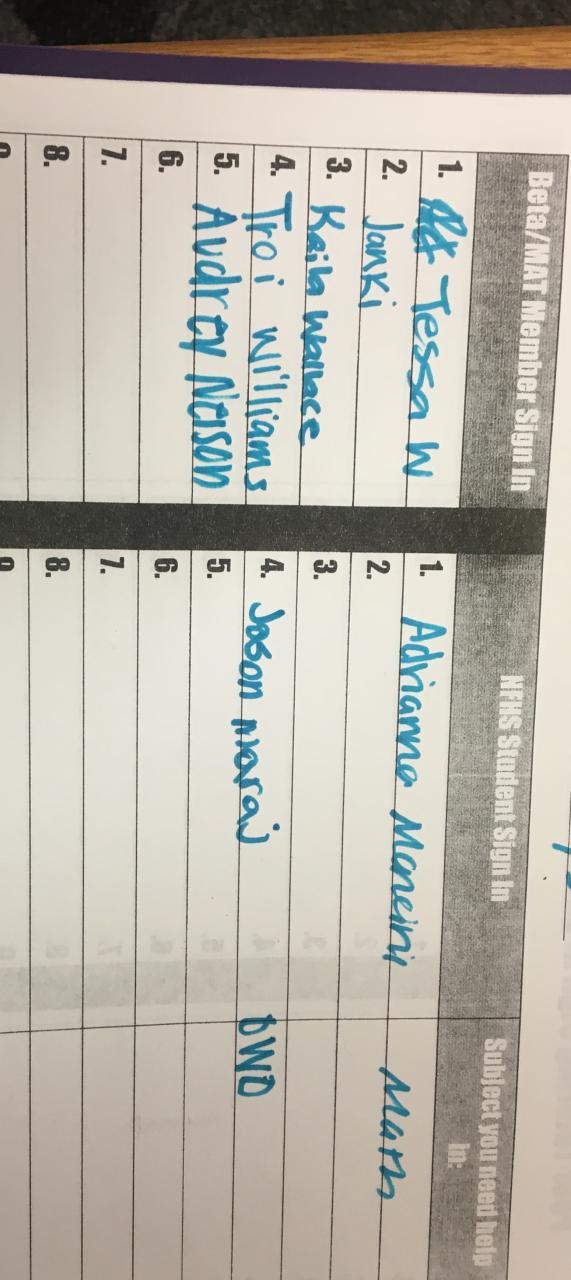 Beta/MAT Member Sign In
1. Tessa W
2. Janki
3. Kaila Wallace
4. Troi Williams
5. Audrey Nelson
6.
7.
8.
NFHS Student Sign In
Subject you need help in:
1. Adrianna Mancini Math
2.
3.
4. Jason maraj DWD
5.
6.
7.
8.